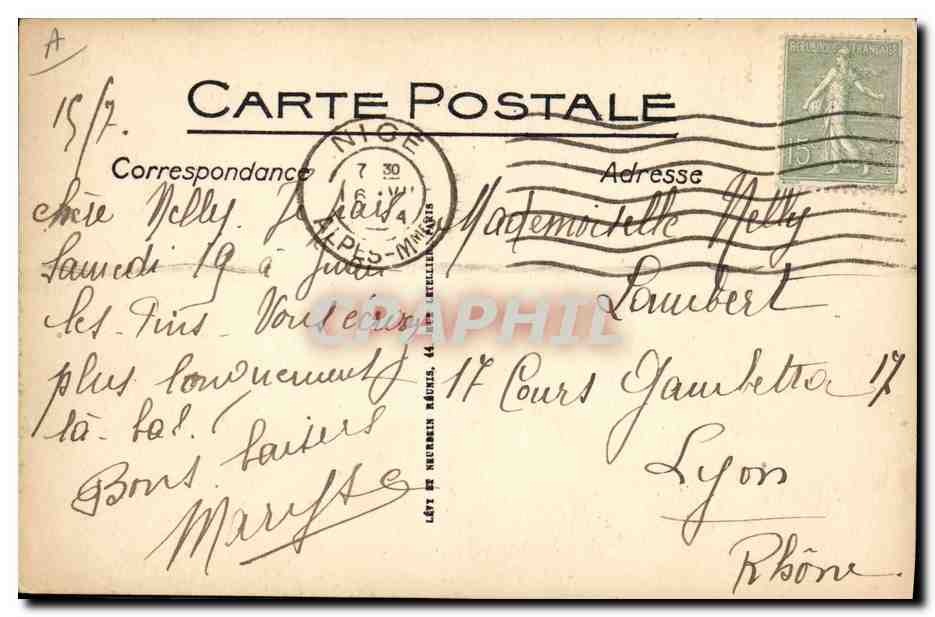 A
CARTE POSTALE
REPUBLIQUE FRANÇAISE
15
15/7.
NICE
7 30
6
ALPES-MMES
Correspondance
Adresse
chère Nelly. Je
Samedi 19 à Juan
les-Pins. Vous écrirez
plus longuement
là-bas.
Bons baisers
Mademoiselle Nelly
Lambert
17 Cours Gambetta 17
Lyon
Rhône.
LÉVY ET NEURDEIN RÉUNIS, 44 RUE LETELLIER, PARIS
CPAPHIL